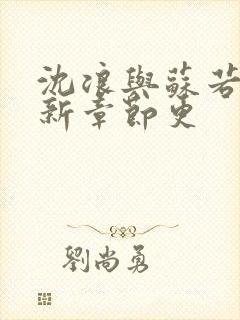 沈浪與蘇若
新章節更
劉尚勇